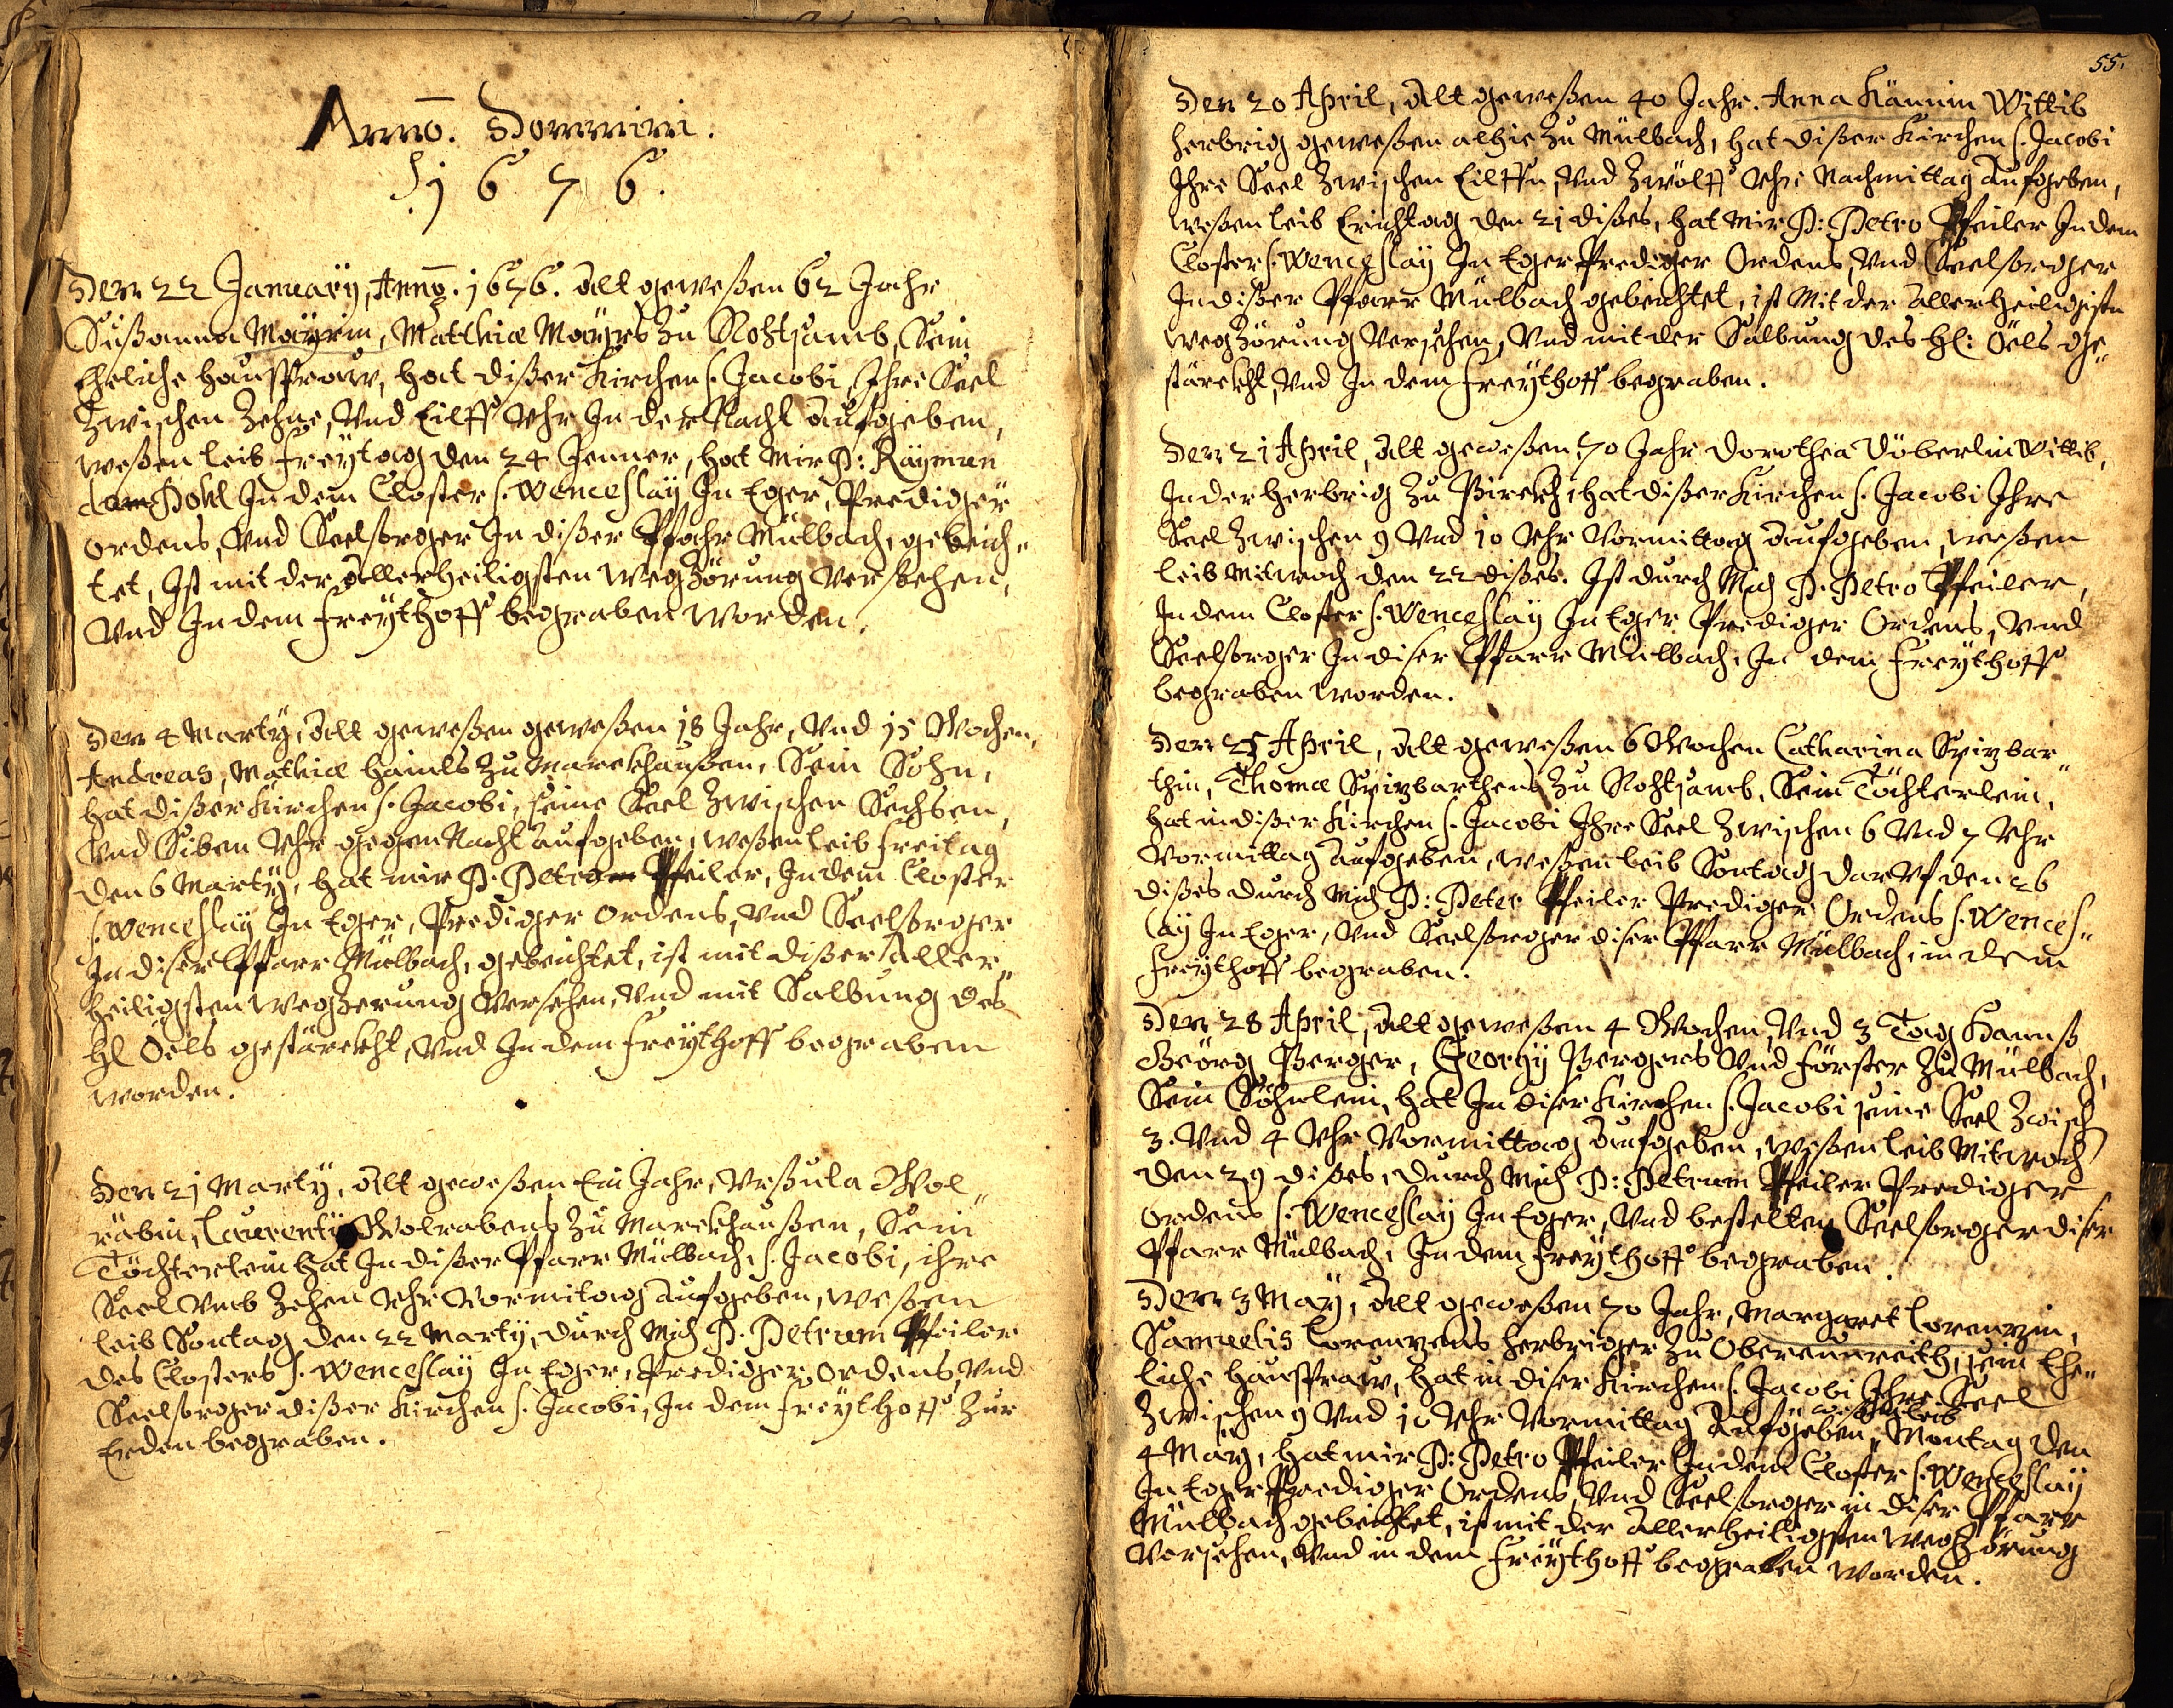 Anno. Domini.
1676.
Den 22 January, Anno. 1676. Alt geweßen 62 Jahr
Sußanna Mayrin, Matthiæ Mayrs zu Rohtsamb, Sein
Eheliche haußfraw, hat dißer Kirchen S. Jacobi, Ihre Seel
Zwischen Zehne, Vnd Eilff Vhr In der Nacht aufgeben,
weßen leib freytag den 24 Jenner, hat mir P: Raymun
do Pohl In dem Closter S. Wenceslay In Eger, Prediger
ordens, Vnd Seelsorger In dißer Pfahr Mülbach, gebeich„
tet, Ist mit der Allerheiligsten wegzörung versehen,
Vnd In dem freythoff begraben worden.
Den 4 Marty, Alt geweßen geweßen 18 Jahr, Vnd 15 Wochen,
Andreas, Mathiæ haimls zu Marckhaußen, Sein Sohn,
hat dißer Kirchen S. Jacobi, seine Seel zwischen Sechsen,
Vnd Siben Vhr gegen Nacht aufgeben, weßen leib freitag
den 6 Marty, hat mir P. Petro Pfeiler, In dem Closter
S. Wenceslay In Eger, Prediger ordens, Vnd Seelsorger
In diser Pfarr Mülbach, gebeichtet, ist mit dißer Aller„
heiligsten wegzerung versehen, Vnd mit Salbung des
Hl Öels gestärckht, Vnd In dem freythoff begraben
worden.
Den 21 Marty, Alt geweßen Ein Jahr, Vrßula Wol„
räbin, Laurenty Wolrabens zu Marckhaußen, Sein
Töchterlein hat In dißer Pfarr Mülbach, S. Jacobi, ihre
Seel Vmb Zehen Vhr Vormitag aufgeben, weßen
leib Sontag den 22 Marty, durch mich P. Petrum Pfeiler
des Closters S. Wenceslay In Eger, Prediger ordens, Vnd
Seelsorger dißer Kirchen S. Jacobi, In dem freythoff zur
Erden begraben.
55.
Den 20 April, Alt geweßen 40 Jahr. Anna Wittib
herbrig geweßen alhie zu Mülbach, hat dißer Kirchen S. Jacobi
Ihre Seel Zwischen Eilffn, Vnd Zwölff Vhr Nachmittag aufgeben,
weßen leib Erichtag den 21 dißes, hat mir P: Petro Pfeiler In dem
Closter S. Wenceslay In Eger Prediger Ordens, Vnd Seelsorger
In dißer Pfarr Mülbach gebeichtet, ist mit der allerheiligisten
wegzörung versehen, Vnd mit der Salbung des Hl: Öels ge„
stärckht, Vnd In dem freythoff begraben.
Den 21 April, Alt geweßen 70 Jahr Dorothea Döberlin Wittib,
In der herbrig zu Pirckh, hat dißer Kirchen S. Jacobi Ihre
Seel zwischen 9 Vnd 10 Vhr Vormittag aufgeben, weßen
leib Mitwoch den 22 dißes. Ist durch Mich P. Petro Pfeiler,
In dem Closter S. Wenceslay In Eger Prediger Ordens, Vnd
Seelsorger In diser Pfarr Mülbach, In dem Freythoff
begraben worden.
Den 25 April, Alt geweßen 6 Wochen Catharina Spizbar„
thin, Thomæ Spizbarthens zu Rohtsamb, Sein Töchterlein,
hat in dißer Kirchen S. Jacobi Ihre Seel zwischen 6 Vnd 7 Vhr
Vormittag aufgeben, weßen leib Sontag darvf den 26
dißes durch mich P: Peter Pfeiler Prediger Ordens S. Wences„
lay In Eger, Vnd Seelsorger diser Pfarr Mülbach, in dem
freythoff begraben.
Den 28 April, Alt geweßen 4 Wochen, Vnd 3 Tag Hannß
Geörg Perger, Georgy Pergers Vnd förster zu Mülbach,
Sein Söhnlein, hat In diser Kirchen S. Jacobi seine Seel zwisch
3. Vnd 4 Vhr Vormittag aufgeben, weßen leib Mitwoch
den 29 dißes, durch mich P: Petrum Pfeiler Prediger
ordens S: Wenceslay In Eger, Vnd bestelten Seelsorger diser
Pfarr Mülbach, In dem freythoff begraben.
Den 3 May, Alt geweßen 70 Jahr, Margaret Lorenzin,
Samuelis Lorenzens herbriger zu Oberkunreith, sein Ehe„
liche haußfraw, hat in diser Kirchen S. Jacobi Ihre Seel
zwischen 9 Vnd 10 Vhr Vormittag aufgeben, weßen leib Montag den
4 May, hat mir P: Petro Pfeiler In dem Closter S. Wenceslay
In Eger Prediger Ordens, Vnd Seelsorger in diser Pfarr
Mülbach gebeichtet, ist mit der Allerheiligsten wegzörung
versehen, Vnd in dem freythoff begraben worden.